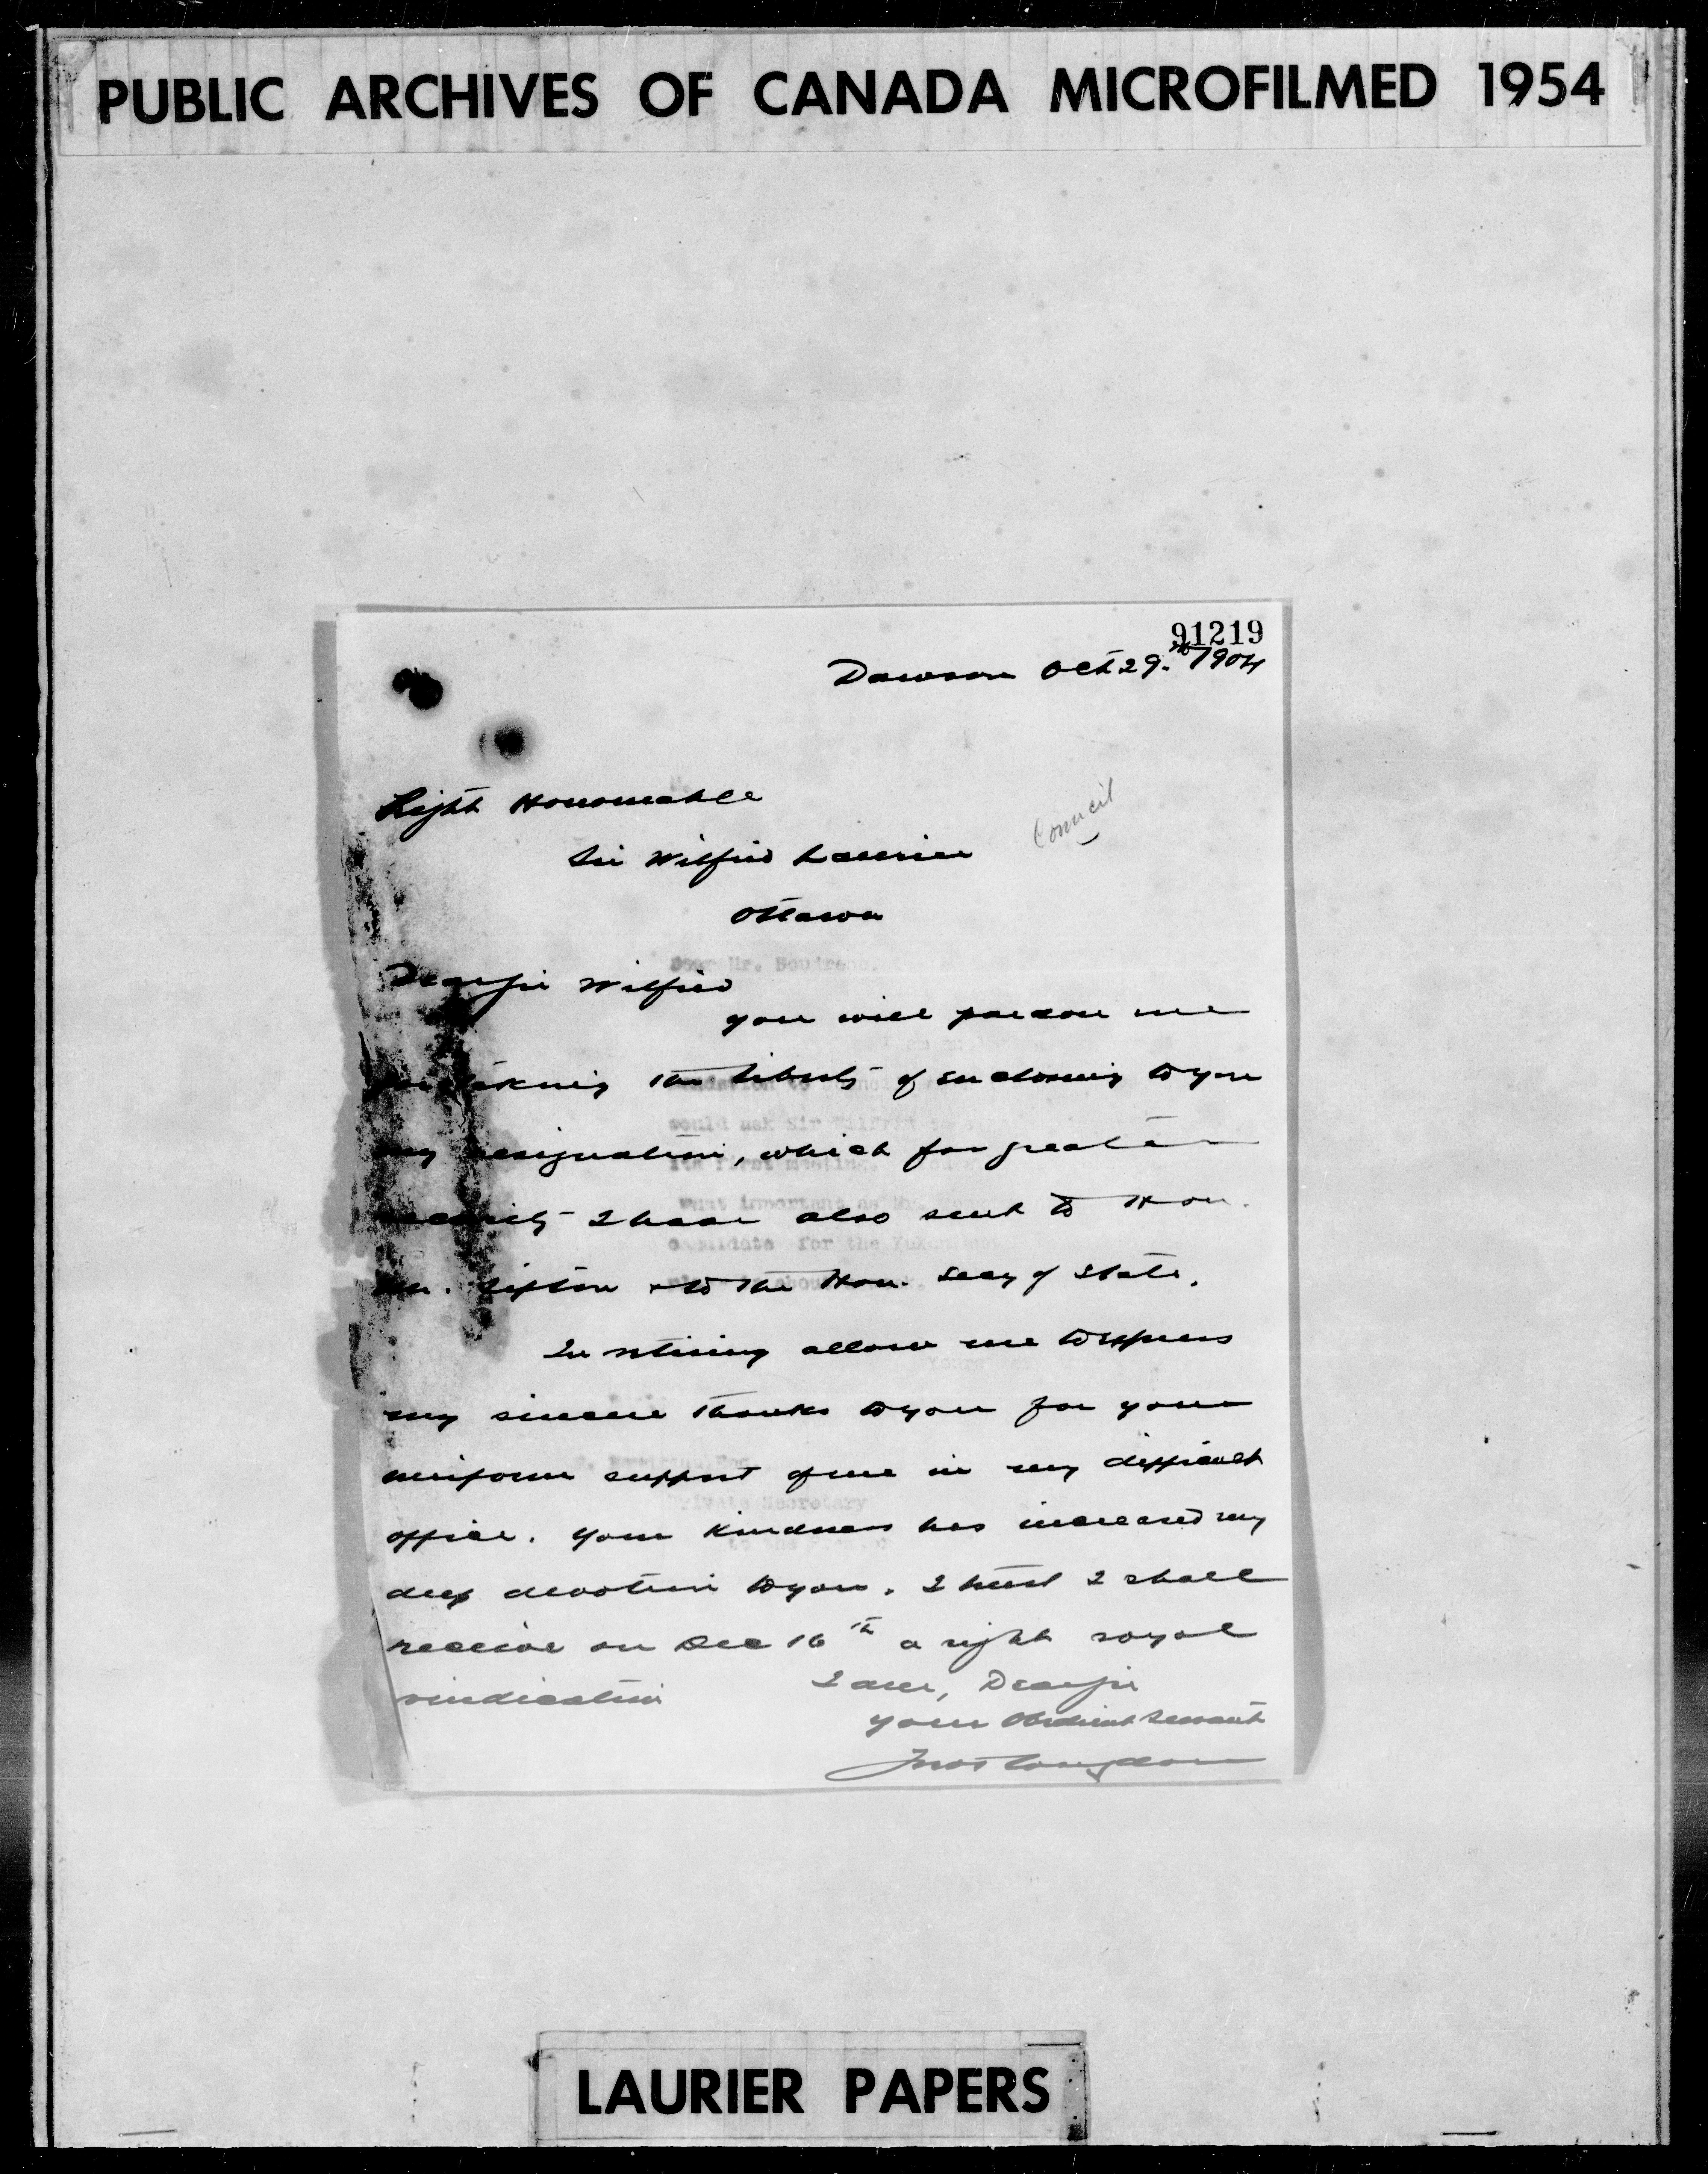 PUBLIC ARCHIVES OF CANADA MICROFILMED 1954
91219
Dawson Oct 29.th 1904
Right Honourable
Council
Sir Wilfrid Laurier
Ottawa
Dear Sir Wilfrid
you will pardon me
for taking the liberty of enclosing to you
my resignation, which for greater
security I have also sent to Hon.
Mr. Sifton & to the Hon. Secy of State.
In retiring allow me to express
my sincere thanks to you for your
uniform support of me in my difficult
office. Your kindness has increased my
deep devotion to you. I trust I shall
receive on Dec 16th a right royal
vindication
I am, Dear Sir
Your Obedient Servant
Congdon
LAURIER PAPERS